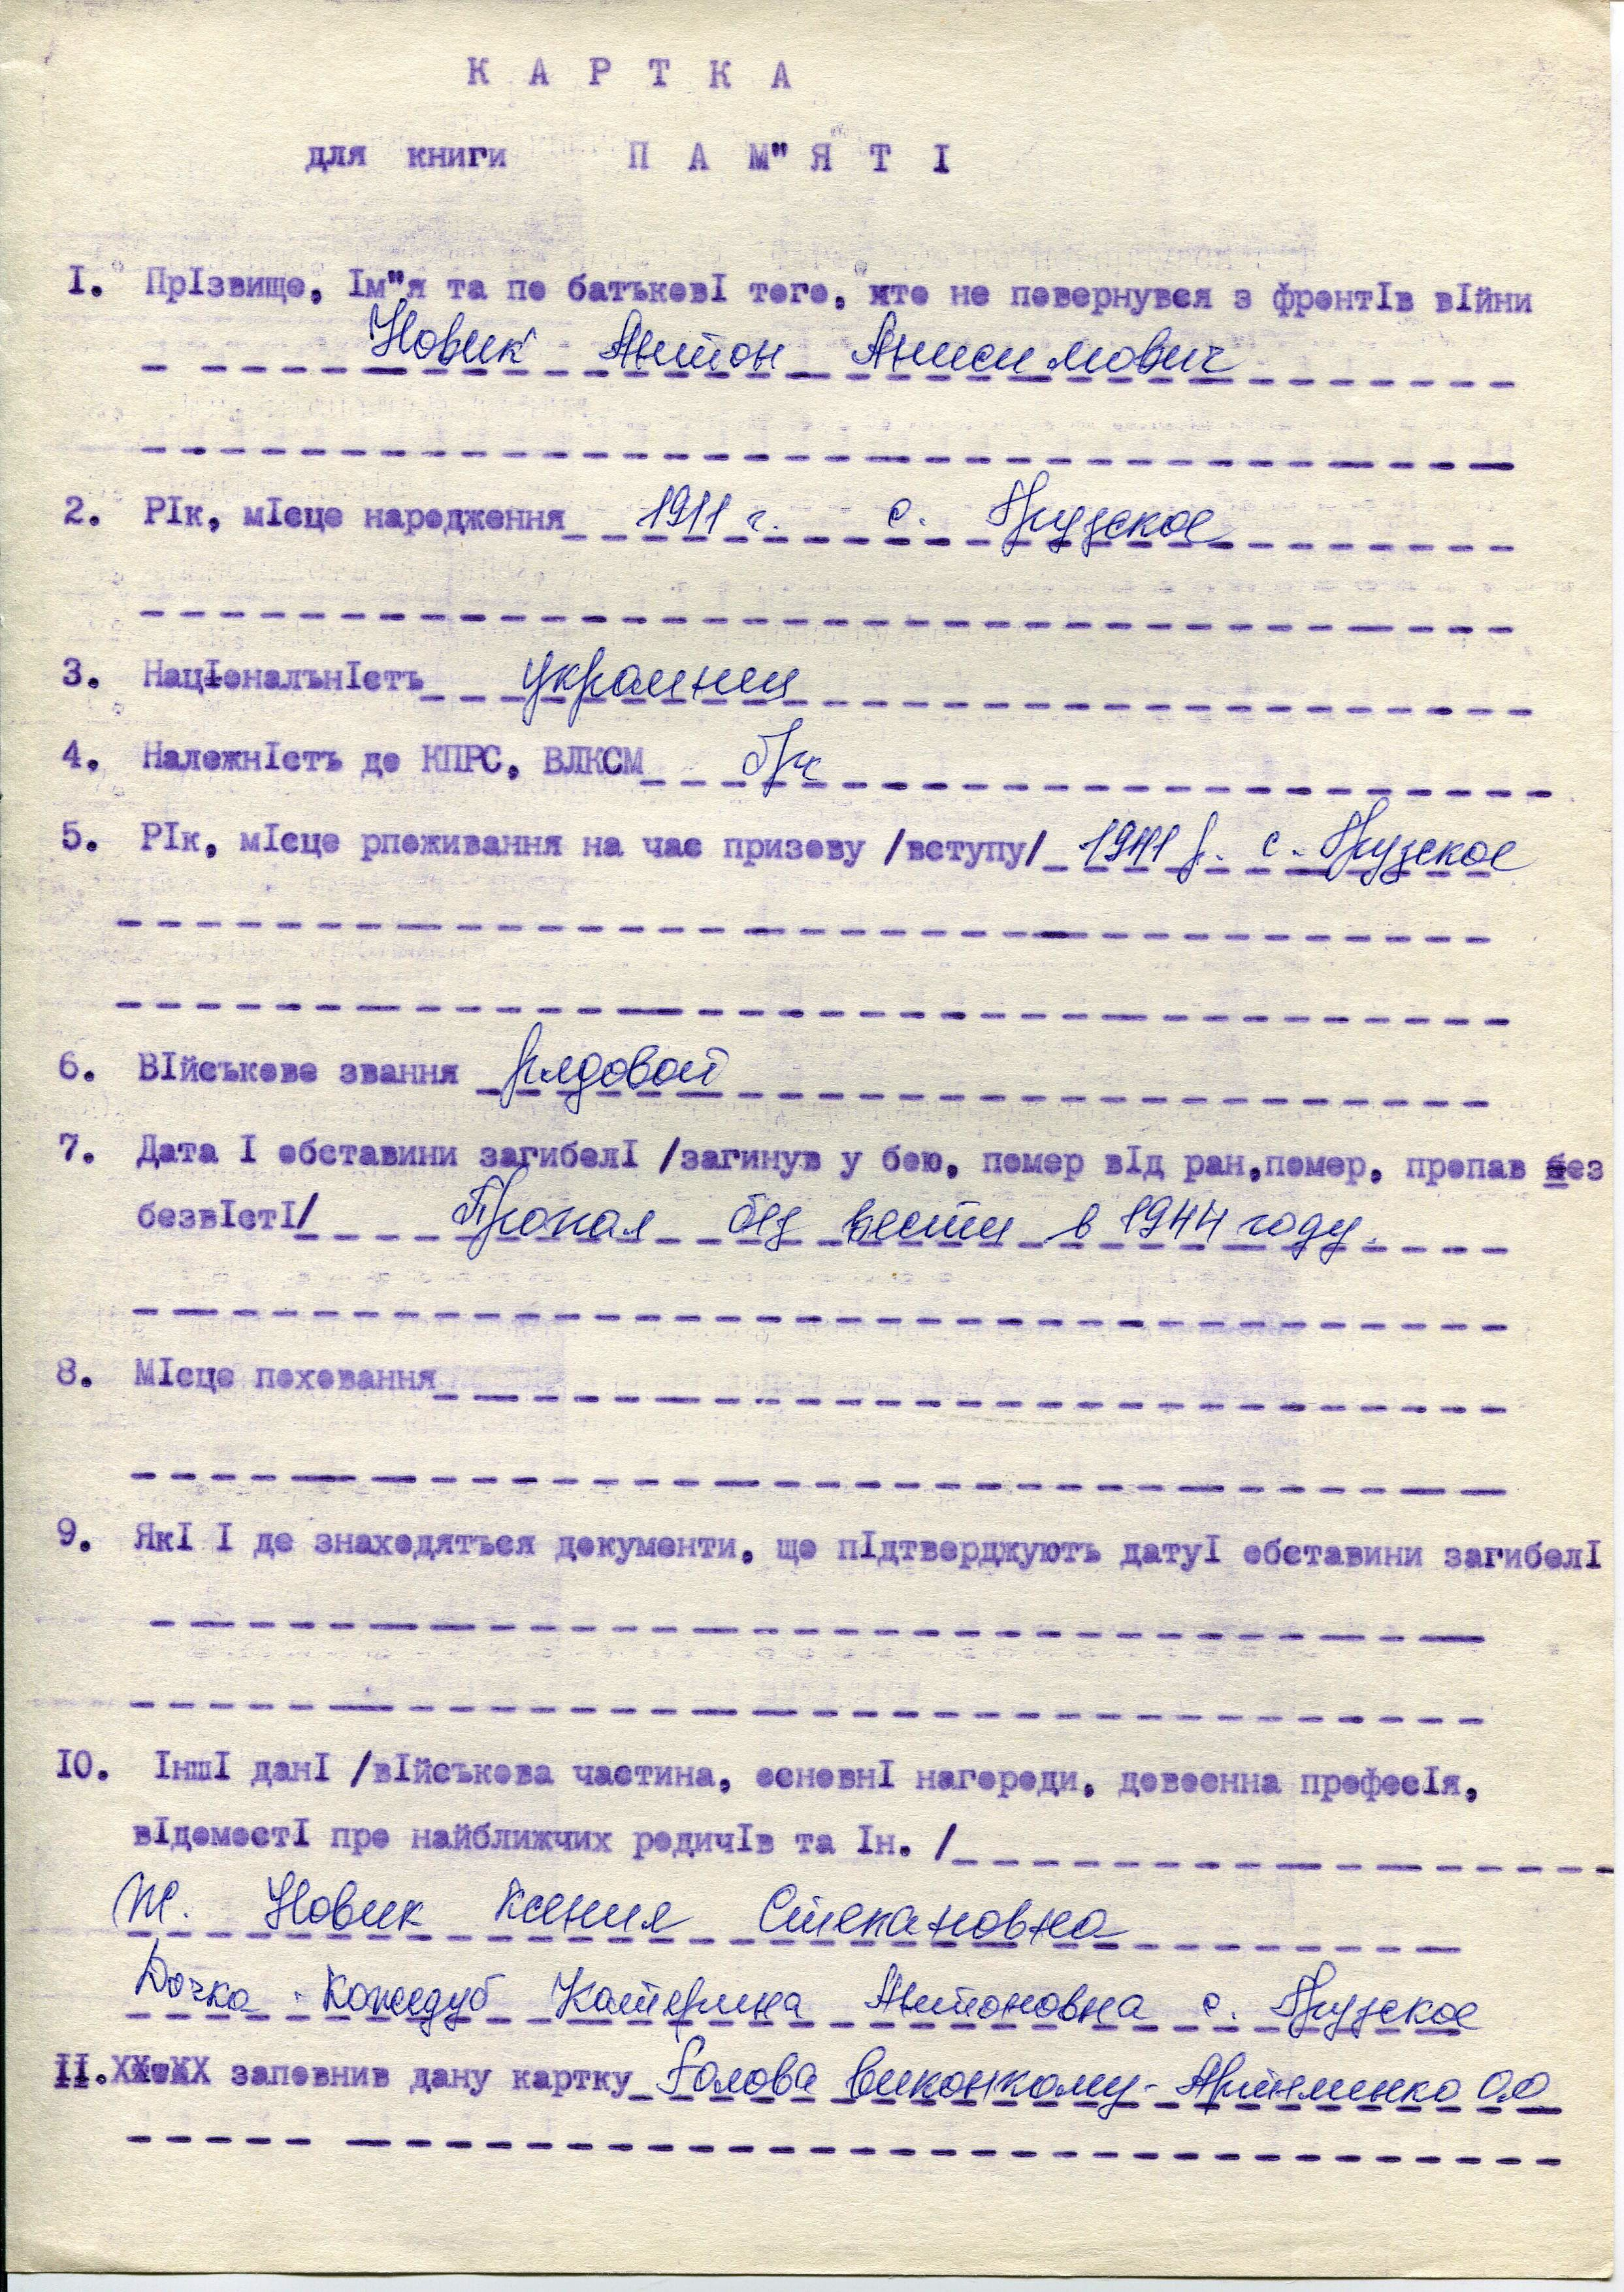 К А Р Т К А
для книги П А М"Я Т І
I. ПрIзвище, Iм"я та по батьковI того, хто не повернувся з фронтIв вIйни
Новик Антон Анисимович
2. РIк, мIсце народження 1911 г. с. Прузское
3. НацIональнIсть украинец
4. НалежнIсть до КПРС, ВЛКСМ б/п
5. РIк, мIсце рпоживання на час призову /вступу/ 1941 р. с. Прузское
6. ВIйськове звання рядовой
7. Дата I обставини загибелI /загинув у бою, помер вIд ран,помер, пропав без
безвIстI/ Пропал без вести в 1944 году.
8. МIсце поховання
9. ЯкI I де знаходяться документи, що пIдтверджують датуI обставини загибелI
IO. IншI данI /вIйськова частина, основнI нагороди, довоєнна професIя,
вIдомостI про найближчих родичIв та Iн. /
Ж. Новик Ксения Степановна
Дочка Кожедуб Катерина Антоновна с. Прузское
II. заповнив дану картку Голова виконкому - Артеменко О.О